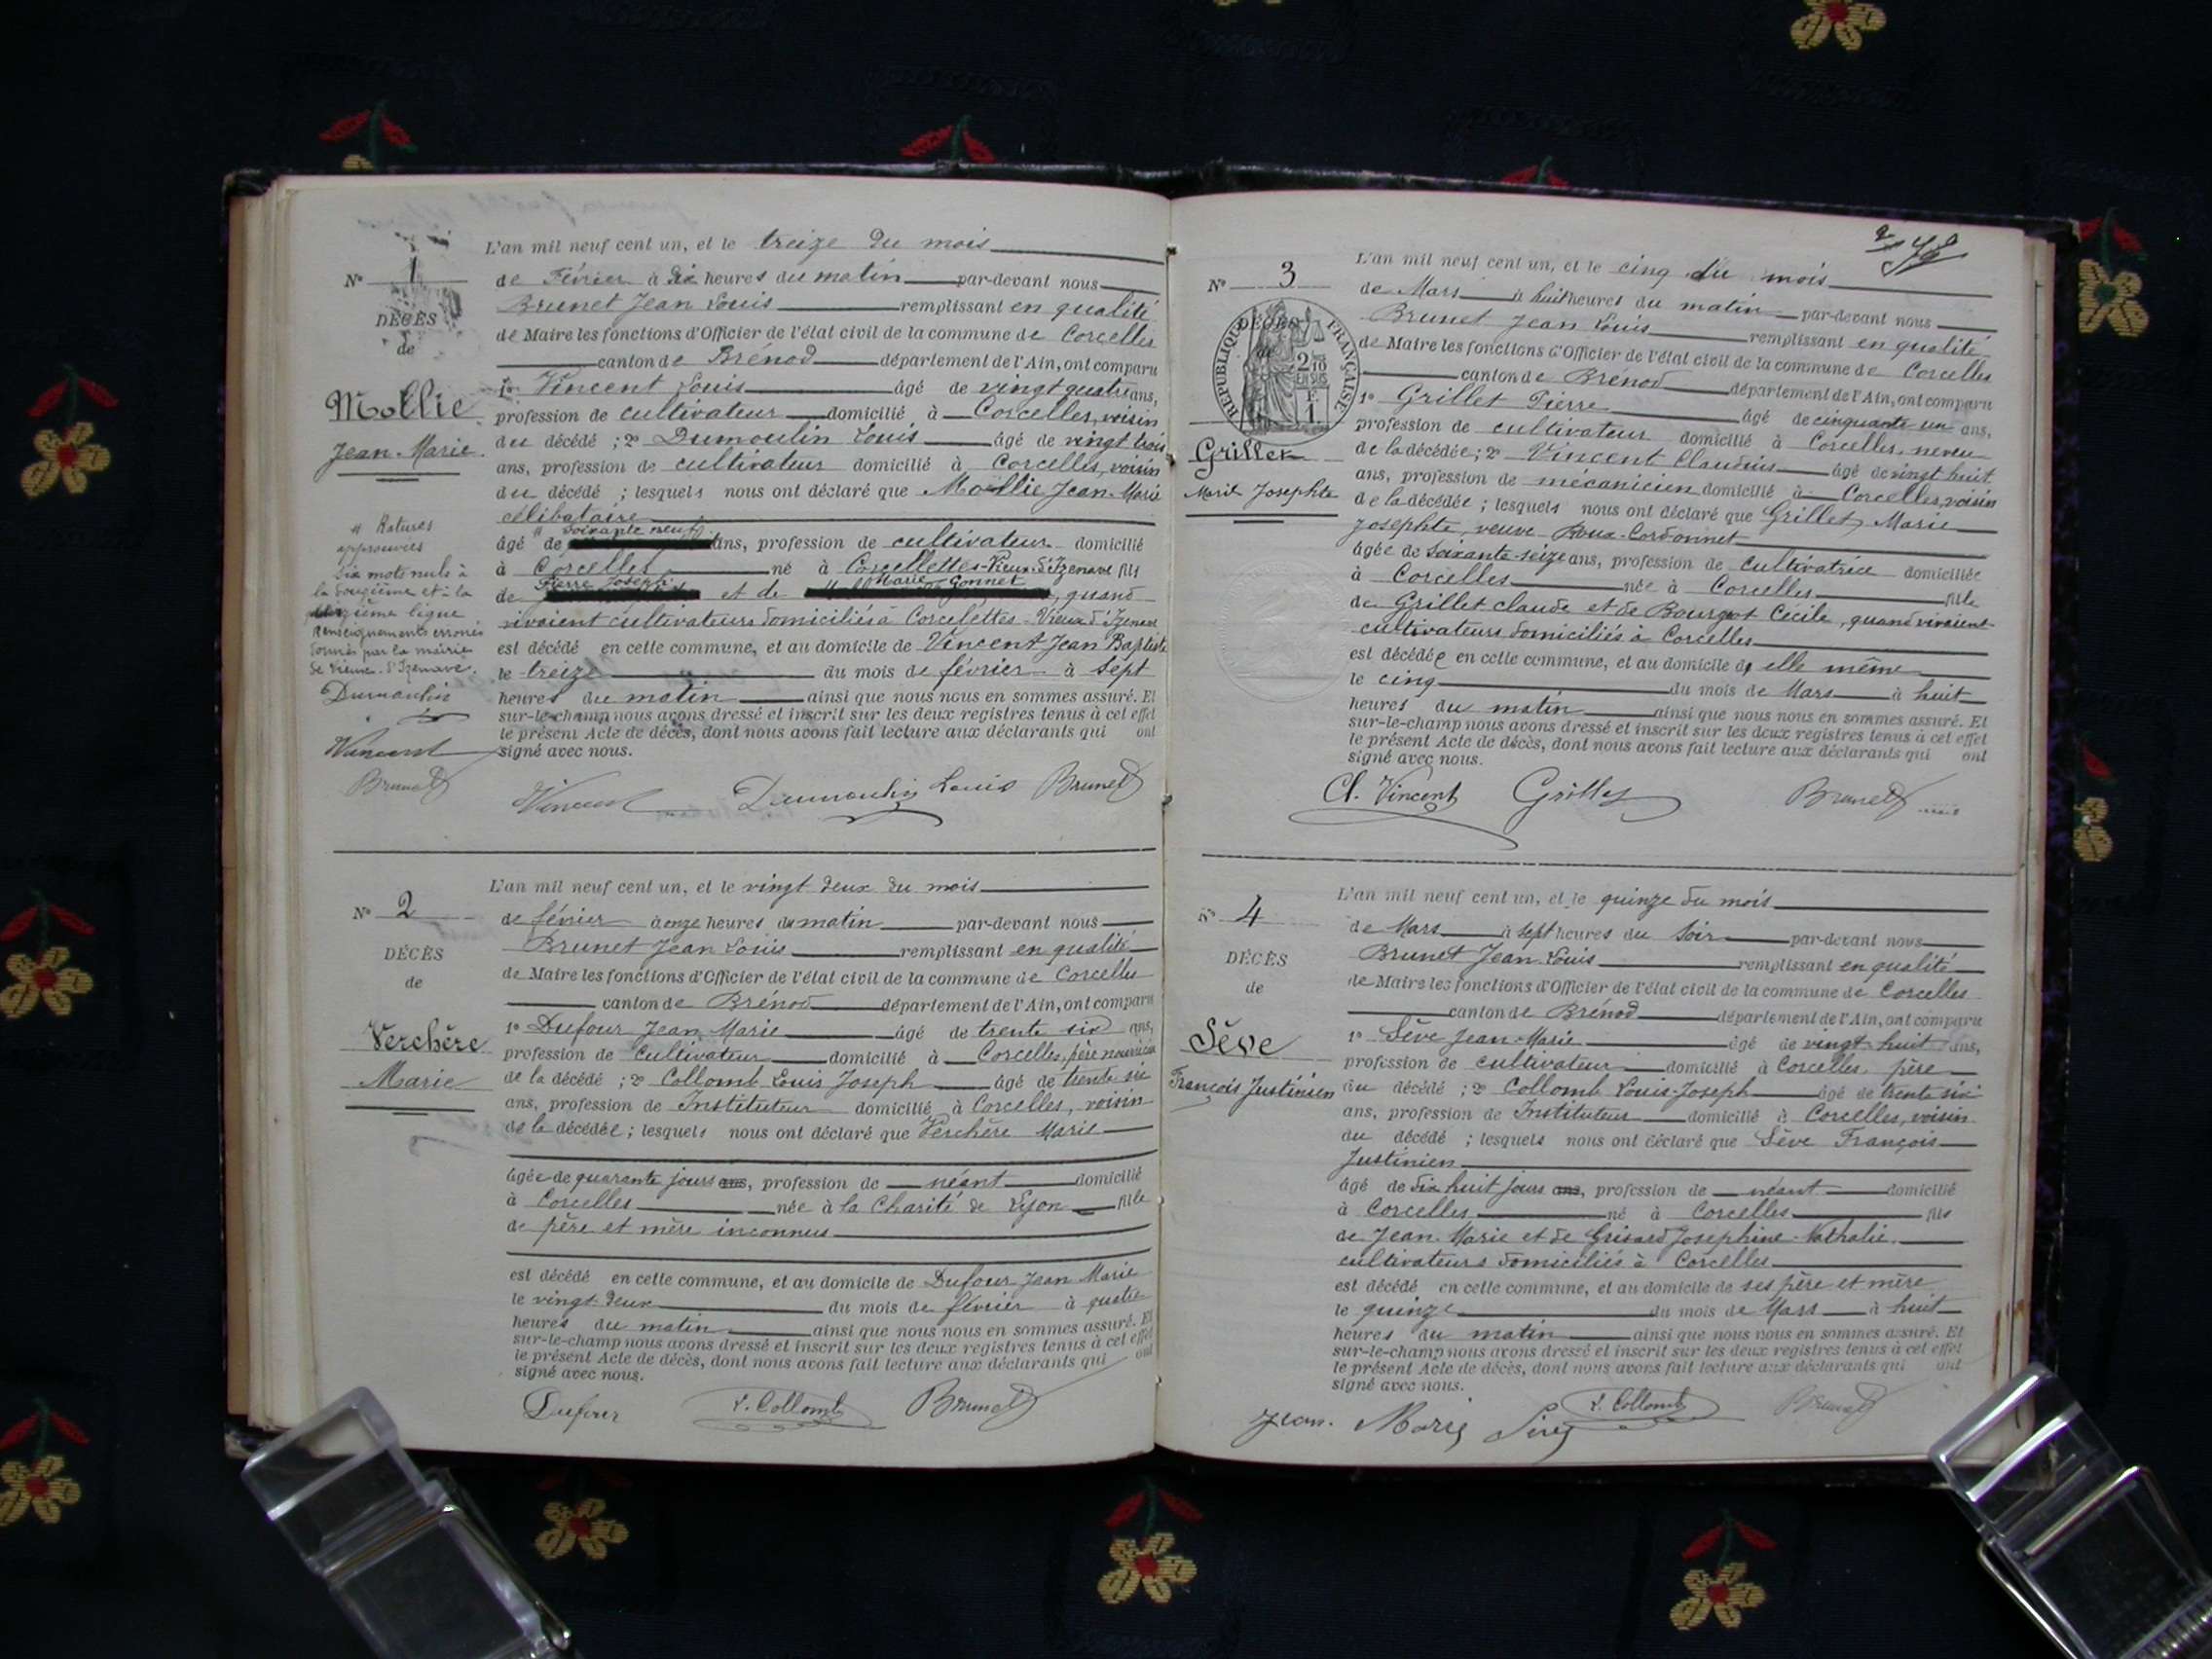 N° 1
DÉCÈS
de
Mollie
Jean-Marie
L'an mil neuf cent un, et le treize du mois
de Février à dix heures du matin par-devant nous
Brunet Jean Louis remplissant en qualité
de Maire les fonctions d'Officier de l'état civil de la commune de Corcelles
canton de Brénod département de l'Ain, ont comparu
1° Vincent Louis âgé de vingt quatre ans,
profession de cultivateur domicilié à Corcelles, voisin
du décédé ; 2° Dumoulin Louis âgé de vingt trois
ans, profession de cultivateur domicilié à Corcelles, voisin
du décédé ; lesquels nous ont déclaré que Mollie Jean-Marie
célibataire
soixante neuf
âgé de ans, profession de cultivateur domicilié
à Corcelles né à Corcelettes-Vieux-d'Izenave fils
Pierre Joseph Marie Gonnet
de et de , quand
vivaient cultivateurs domiciliés à Corcelettes-Vieux d'Izenave
est décédé en cette commune, et au domicile de Vincent Jean Baptiste
le treize du mois de février à sept
heures du matin ainsi que nous nous en sommes assuré. Et
sur-le-champ nous avons dressé et inscrit sur les deux registres tenus à cet effet
le présent Acte de décès, dont nous avons fait lecture aux déclarants qui ont
signé avec nous.
Vincent Dumoulin Louis Brunet
Ratures
approuvées
six mots nuls à
la douzième et à la
ligne
Renseignements erronés
donnés par la mairie
de Vieux-d'Izenave.
Dumoulin
Vincent
Brunet
N° 2
DÉCÈS
de
Verchère
Marie
L'an mil neuf cent un, et le vingt deux du mois
de février à onze heures du matin par-devant nous
Brunet Jean Louis remplissant en qualité
de Maire les fonctions d'Officier de l'état civil de la commune de Corcelles
canton de Brénod département de l'Ain, ont comparu
1° Dufour Jean Marie âgé de trente six ans,
profession de cultivateur domicilié à Corcelles, père nourricier
de la décédé ; 2° Collomb Louis Joseph âgé de trente six
ans, profession de Instituteur domicilié à Corcelles, voisin
de la décédée ; lesquels nous ont déclaré que Verchère Marie
âgée de quarante jours ans, profession de néant domicilié
à Corcelles née à la Charité de Lyon fille
de père et mère inconnus
est décédé en cette commune, et au domicile de Dufour Jean Marie
le vingt-deux du mois de février à quatre
heures du matin ainsi que nous nous en sommes assuré. Et
sur-le-champ nous avons dressé et inscrit sur les deux registres tenus à cet effet
le présent Acte de décès, dont nous avons fait lecture aux déclarants qui ont
signé avec nous.
Dufour L. Collomb Brunet
2
N° 3
DÉCÈS
de
RÉPUBLIQUE FRANÇAISE
2/10 EN SUS
F. 1.
Grillet
Marie Josephte
L'an mil neuf cent un, et le cinq du mois
de Mars à huit heures du matin par-devant nous
Brunet Jean Louis remplissant en qualité
de Maire les fonctions d'Officier de l'état civil de la commune de Corcelles
canton de Brénod département de l'Ain, ont comparu
1° Grillet Pierre âgé de cinquante un ans,
profession de cultivateur domicilié à Corcelles, neveu
de la décédée ; 2° Vincent Claudius âgé de vingt huit
ans, profession de mécanicien domicilié à Corcelles, voisin
de la décédée ; lesquels nous ont déclaré que Grillet Marie
Josephte, veuve Roux-Cordonnet
âgée de soixante-seize ans, profession de cultivatrice domiciliée
à Corcelles née à Corcelles fille
de Grillet Claude et de Bourgot Cécile, quand vivaient
cultivateurs domiciliés à Corcelles
est décédée en cette commune, et au domicile d' elle même
le cinq du mois de Mars à huit
heures du matin ainsi que nous nous en sommes assuré. Et
sur-le-champ nous avons dressé et inscrit sur les deux registres tenus à cet effet
le présent Acte de décès, dont nous avons fait lecture aux déclarants qui ont
signé avec nous.
Cl. Vincent Grillet Brunet
N° 4
DÉCÈS
de
Sève
François Justinien
L'an mil neuf cent un, et le quinze du mois
de Mars à sept heures du soir par-devant nous
Brunet Jean Louis remplissant en qualité
de Maire les fonctions d'Officier de l'état civil de la commune de Corcelles
canton de Brénod département de l'Ain, ont comparu
1° Sève Jean-Marie âgé de vingt huit ans,
profession de cultivateur domicilié à Corcelles, père
du décédé ; 2° Collomb Louis-Joseph âgé de trente six
ans, profession de Instituteur domicilié à Corcelles, voisin
du décédé ; lesquels nous ont déclaré que Sève François
Justinien
âgé de dix huit jours ans, profession de néant domicilié
à Corcelles né à Corcelles fils
de Jean-Marie et de Grisard Josephine-Nathalie
cultivateurs domiciliés à Corcelles
est décédé en cette commune, et au domicile de ses père et mère
le quinze du mois de Mars à huit
heures du matin ainsi que nous nous en sommes assuré. Et
sur-le-champ nous avons dressé et inscrit sur les deux registres tenus à cet effet
le présent Acte de décès, dont nous avons fait lecture aux déclarants qui ont
signé avec nous.
Jean Marie Sève L. Collomb Brunet